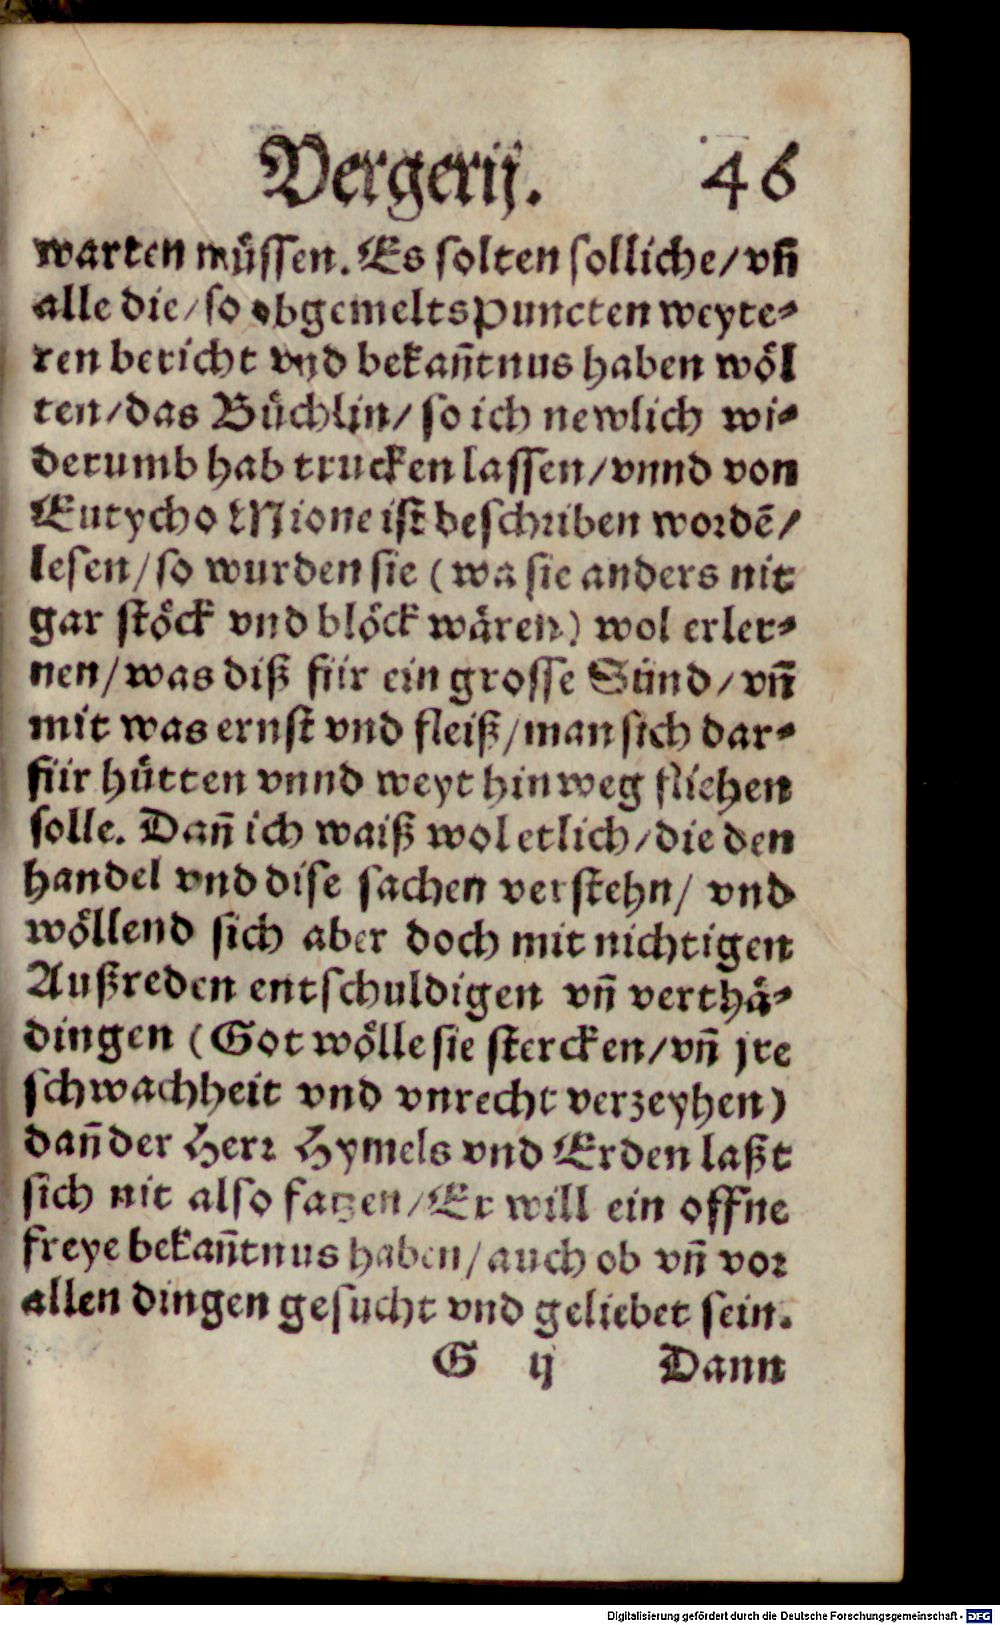 Vergerij. 46
warten müssen. Es solten solliche/ vñ
alle die/ so obgemelts Puncten weyte-
ren bericht vnd bekañtnus haben wöl
ten/ das Büchlin/ so ich newlich wi-
derumb hab trucken lassen/ vnnd von
Eutycho Mione ist beschriben wordẽ/
lesen/ so wurden sie (wa sie anders nit
gar stöck vnd blöck wären) wol erler-
nen/ was diß für ein grosse Sünd/ vñ
mit was ernst vnd fleiß/ man sich dar-
für hütten vnnd weyt hinweg fliehen
solle. Dañ ich waiß wol etlich/ die den
handel vnd dise sachen verstehn/ vnd
wöllend sich aber doch mit nichtigen
Außreden entschuldigen vñ verthä-
dingen (Got wölle sie stercken/ vñ jre
schwachheit vnd vnrecht verzeyhen)
dañ der Herr Hymels vnd Erden laßt
sich nit also fatzen/ Er will ein offne
freye bekañtnus haben/ auch ob vñ vor
allen dingen gesucht vnd geliebet sein.
G ij Dann
Digitalisierung gefördert durch die Deutsche Forschungsgemeinschaft - DFG